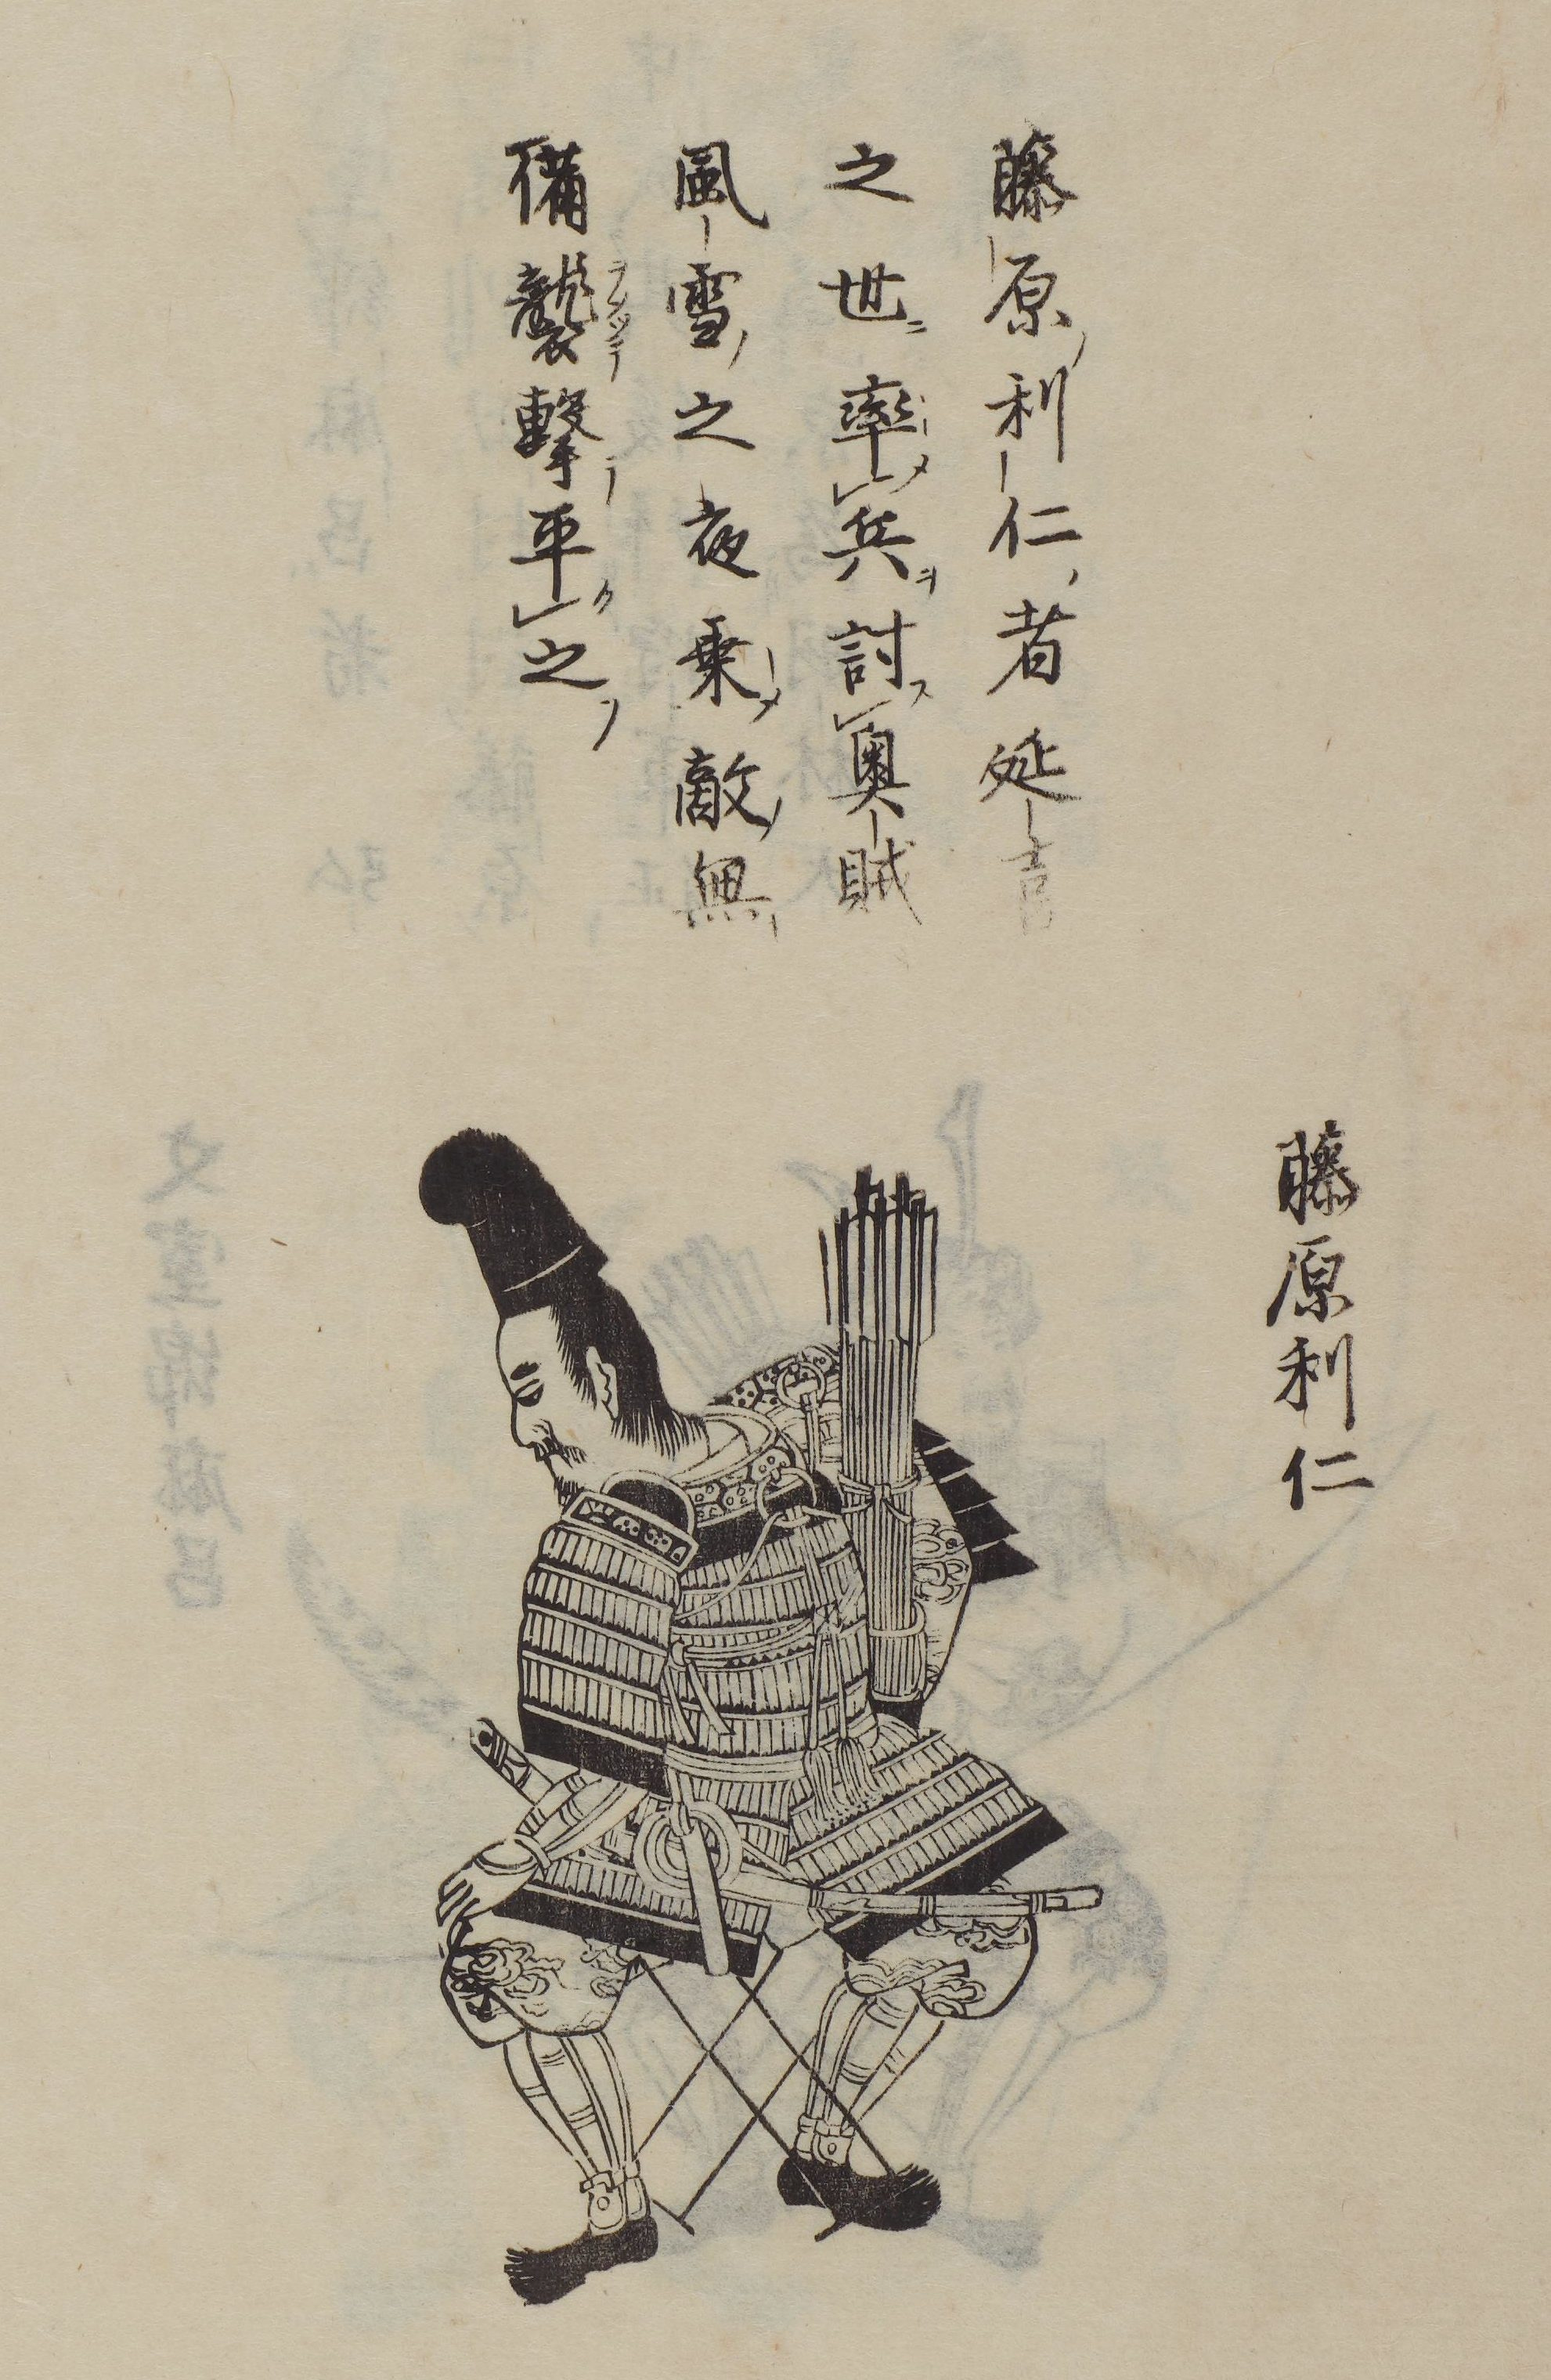 藤原利仁者延喜
之世率兵討奥賊
風雪之夜乗敵無
備襲撃平之
藤原利仁